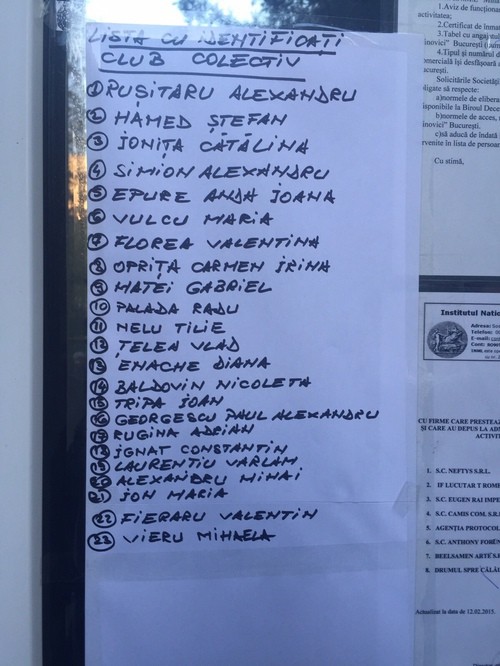 LISTA CU IDENTIFICAȚI
CLUB COLECTIV
1 RUȘITARU ALEXANDRU
2 HAMED ȘTEFAN
3 IONIȚA CĂTĂLINA
4 SIMION ALEXANDRU
5 EPURE ANDA IOANA
6 VULCU MARIA
7 FLOREA VALENTINA
8 OPRIȚA CARMEN IRINA
9 MATEI GABRIEL
10 PALADA RADU
11 NELU TILIE
12 ȚELEA VLAD
13 ENACHE DIANA
14 BALDOVIN NICOLETA
15 TRIPA IOAN
16 GEORGESCU PAUL ALEXANDRU
17 RUGINA ADRIAN
18 IGNAT CONSTANTIN
19 LAURENTIU VARLAM
20 ALEXANDRU MIHAI
21 ION MARIA
22 FIERARU VALENTIN
23 VIERU MIHAELA
1.Aviz de funcționar
activitatea;
2.Certificat de înmat
3.Tabel cu angajații
inovici" București (nu
4.Tipul și numărul de
comercială își desfășoară
București.
Solicităriile Societății
obligate să respecte:
a)normele de elibera
disponibile la Biroul Dece
b)normele de acces,
inovici" București.
c)să aducă de îndată
intervenite în lista de persoan
Cu stimă,
Institutul Națio
Adresa:
Telefon:
E-mail:
Cont:
CU FIRME CARE PRESTEAZ
ȘI CARE AU DEPUS LA AD
ACTIVIT
1. S.C. NEFTYS S.R.L.
2. IF LUCUTAR T ROME
3. S.C. EUGEN RAI IMPE
4. S.C. CAMIS COM. S.R.
5. AGENȚIA PROTOCOL
6. S.C. ANTHONY FOREN
7. BEELSAMEN ARTE S.R
8. DRUMUL SPRE CĂLĂU
Actualizat la data de 12.02.2015.